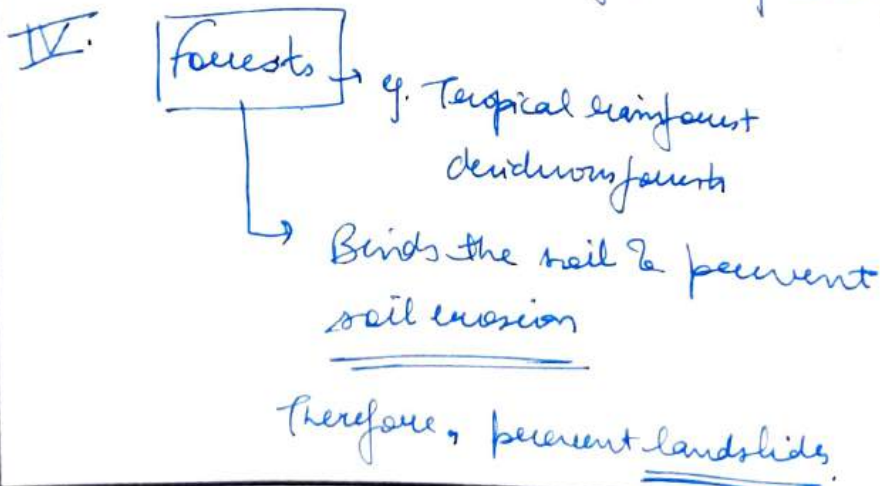 IV. Forests → eg. Tropical rainforest
deciduous forests
→ Binds the soil & prevent
soil erosion
Therefore, prevent landslides.